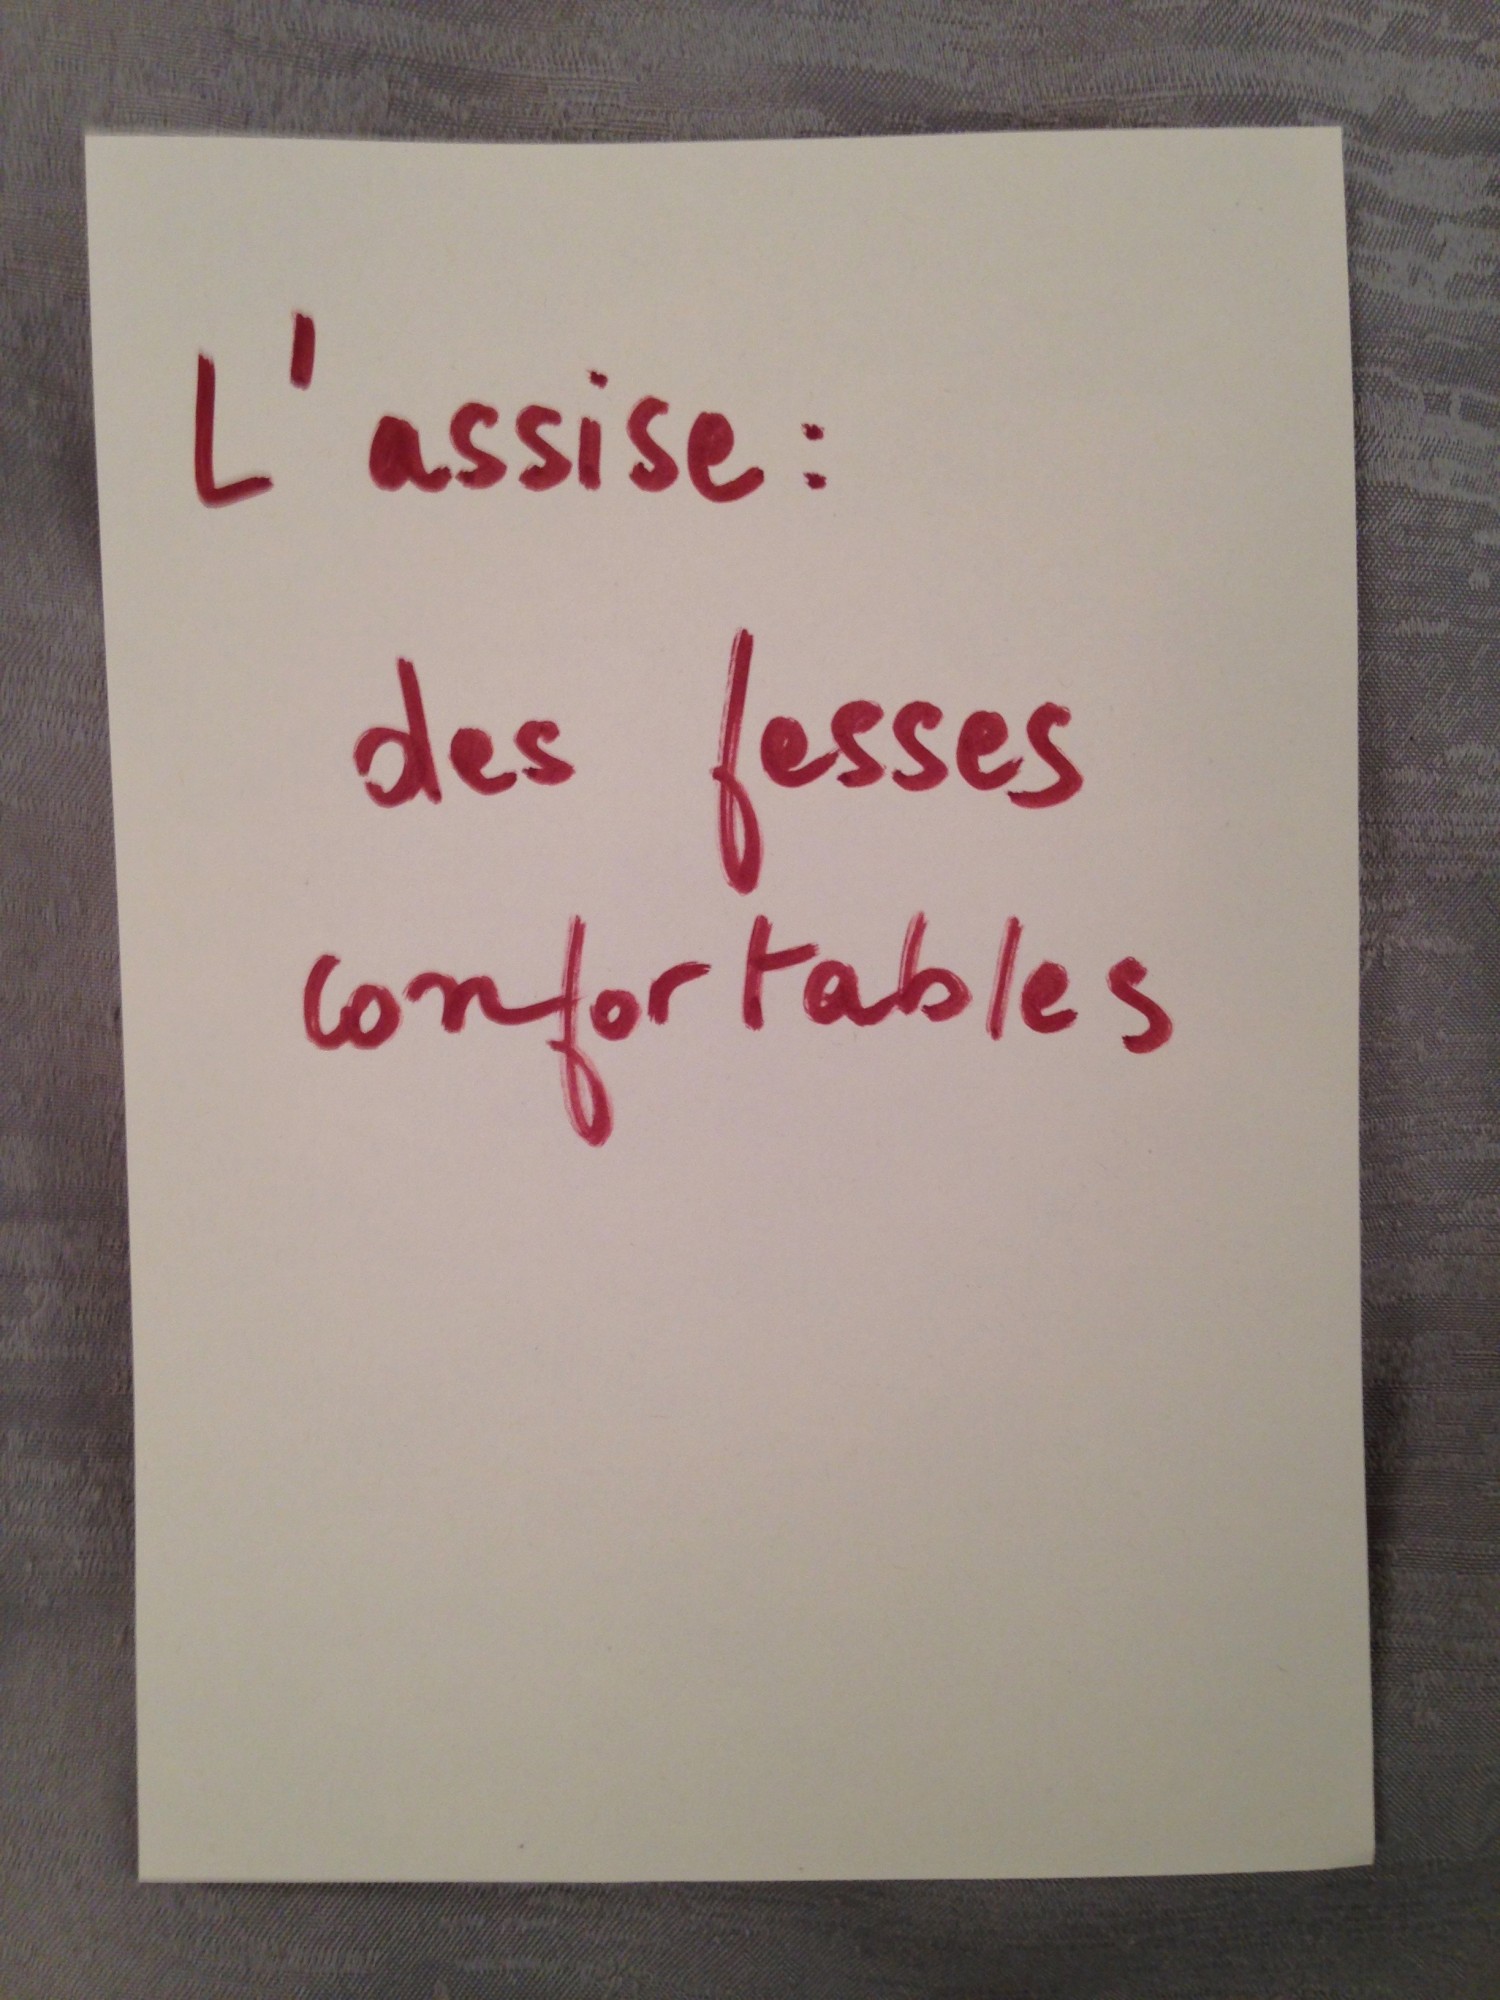 L'assise :
des fesses
confortables